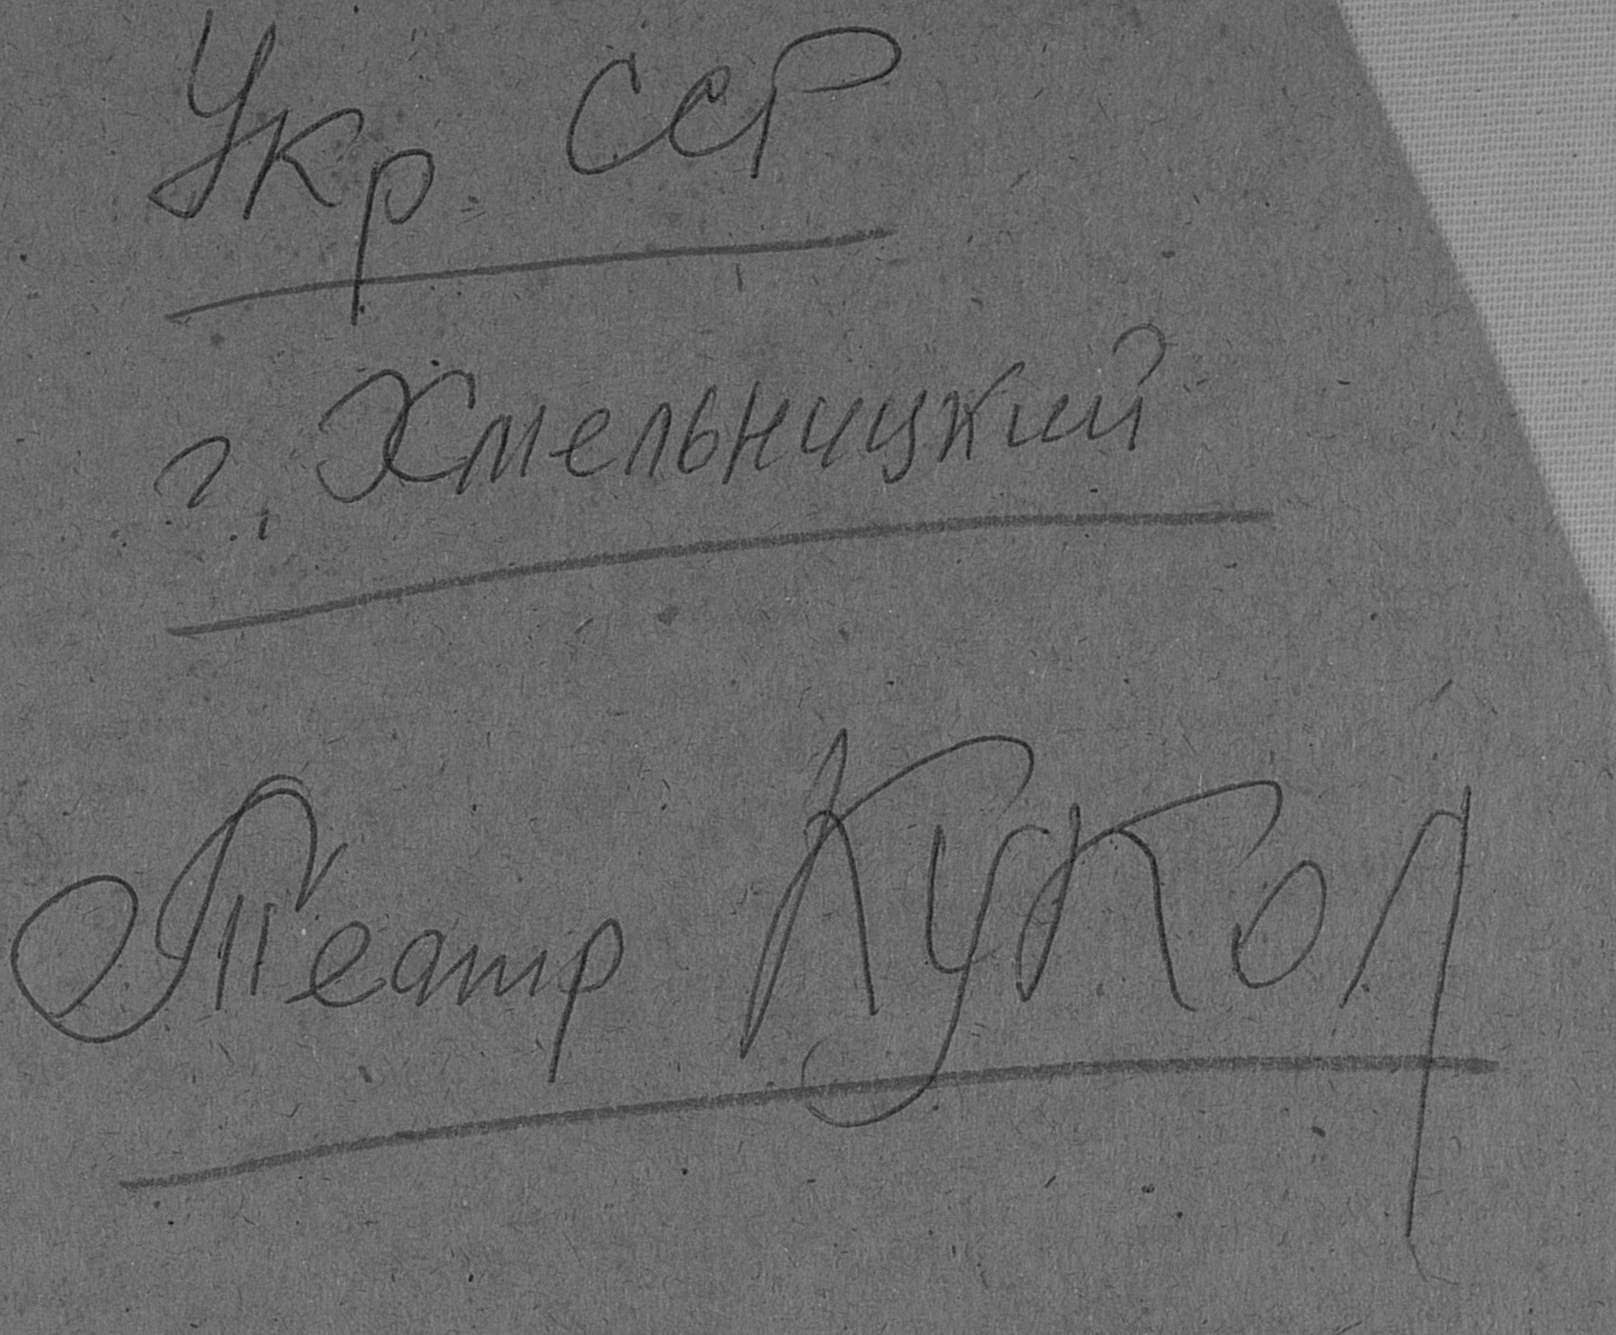 Укр. ССР
г. Хмельницкий
Театр Кукол